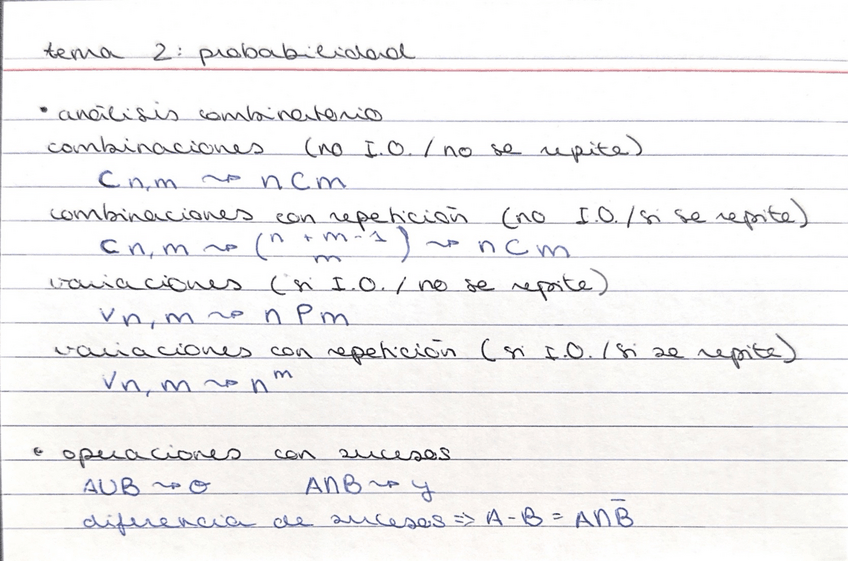 tema 2: probabilidad
• análisis combinatorio
combinaciones (no I.O. / no se repite)
C n,m ⤳ n C m
combinaciones con repetición (no I.O. / si se repite)
C n,m ⤳ (n + m - 1 / m) ⤳ n C m
variaciones (si I.O. / no se repite)
V n,m ⤳ n P m
variaciones con repetición (si I.O. / si se repite)
V n,m ⤳ n^m
• operaciones con sucesos
A∪B ⤳ o A∩B ⤳ y
diferencia de sucesos ⇒ A - B = A∩B̅